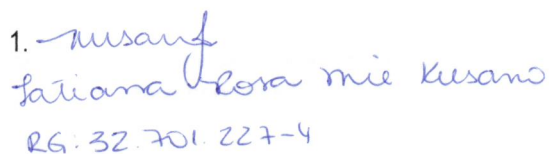 1. Kusanof
Tatiana Rosa Mie Kusano
RG: 32.701.227-4